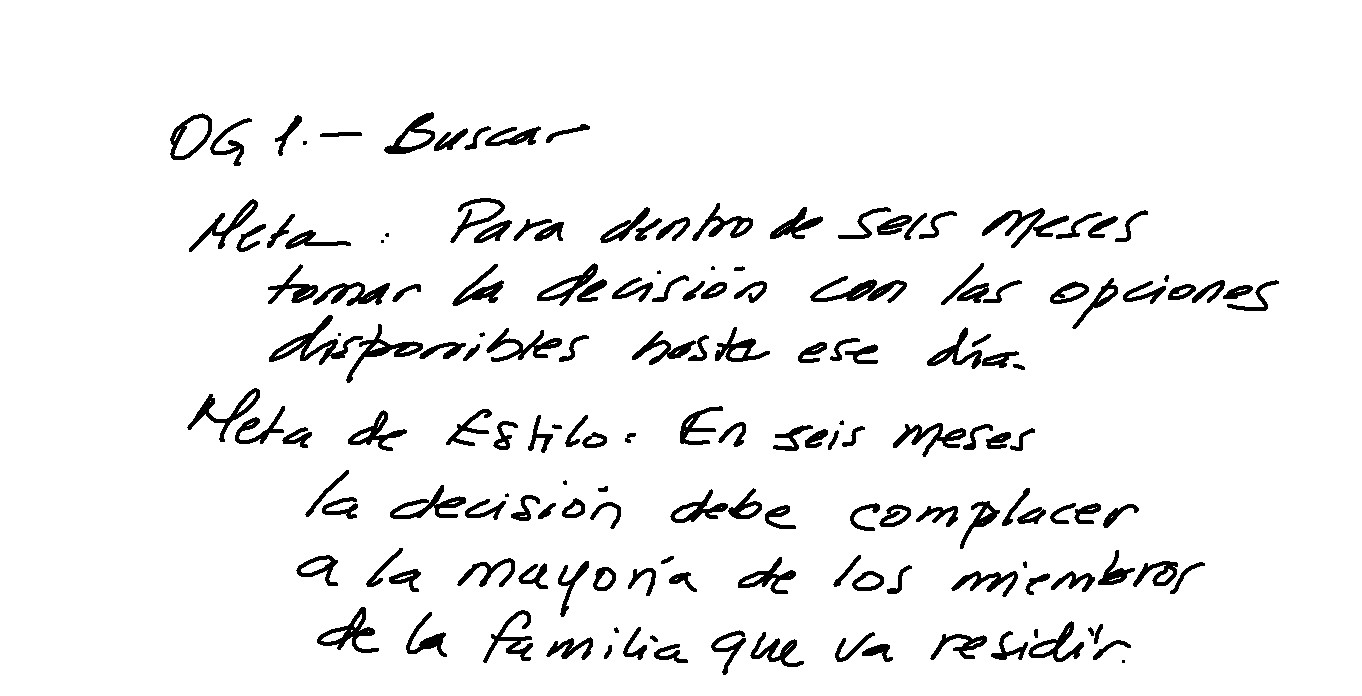 OG 1.- Buscar
Meta: Para dentro de seis meses
tomar la decisión con las opciones
disponibles hasta ese día.
Meta de Estilo: En seis meses
la decisión debe complacer
a la mayoría de los miembros
de la familia que va residir.